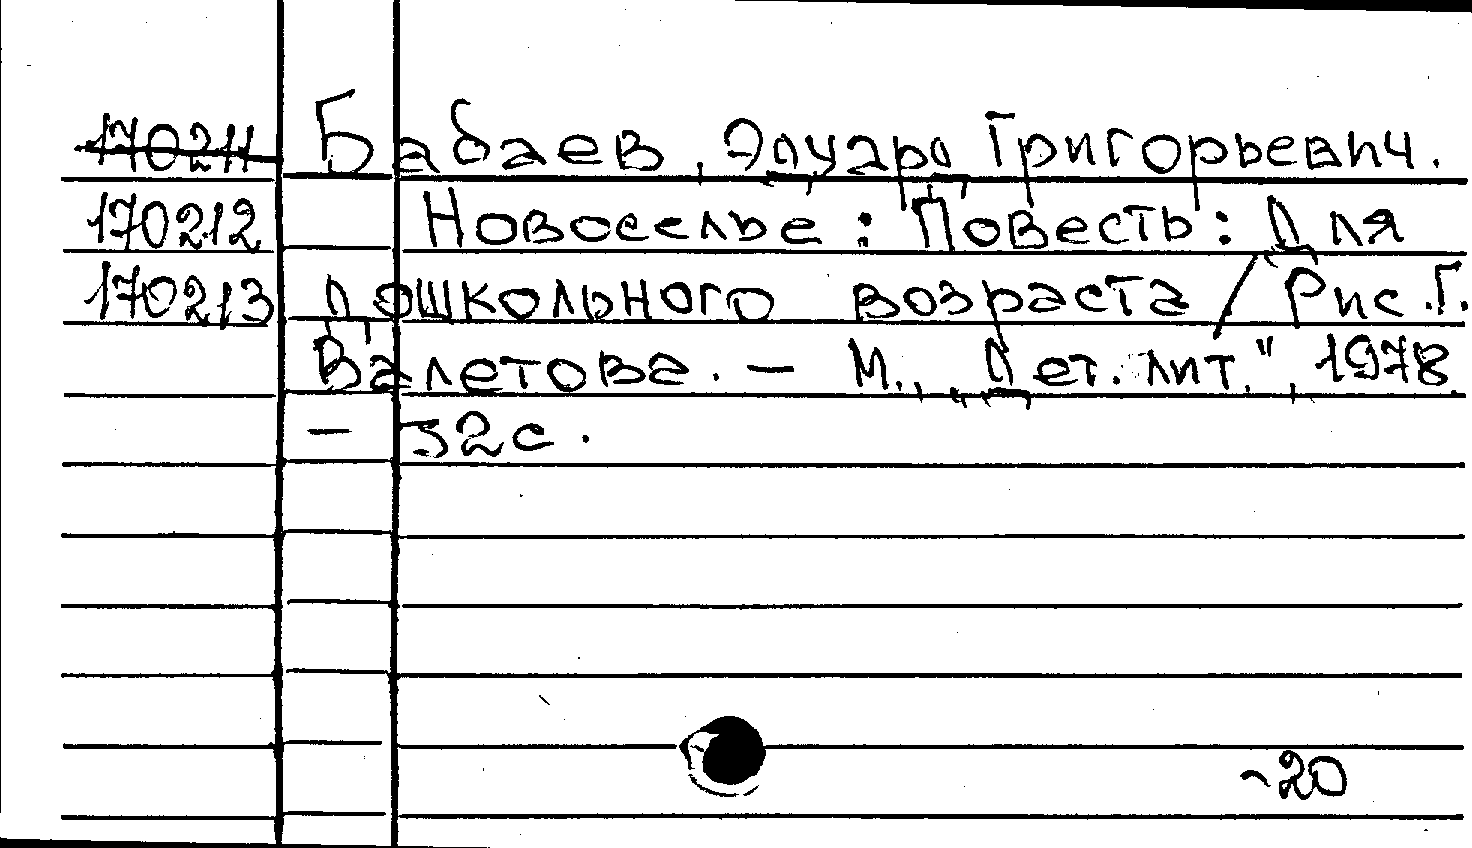 170211 Бабаев, Эдуард Григорьевич.
170212 Новоселье : Повесть : Для
170213 дошкольного возраста / Рис. Г.
Валетова. — М., „Дет. лит.", 1978.
— 32 с.
-20